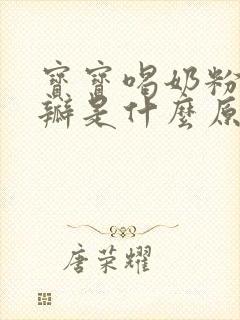 寶寶喝奶粉
瓣是什麼原
唐荣耀